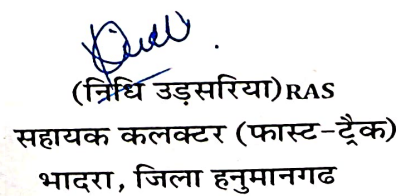 (निधि उड़सरिया) RAS
सहायक कलक्टर (फास्ट-ट्रैक)
भादरा, जिला हनुमानगढ